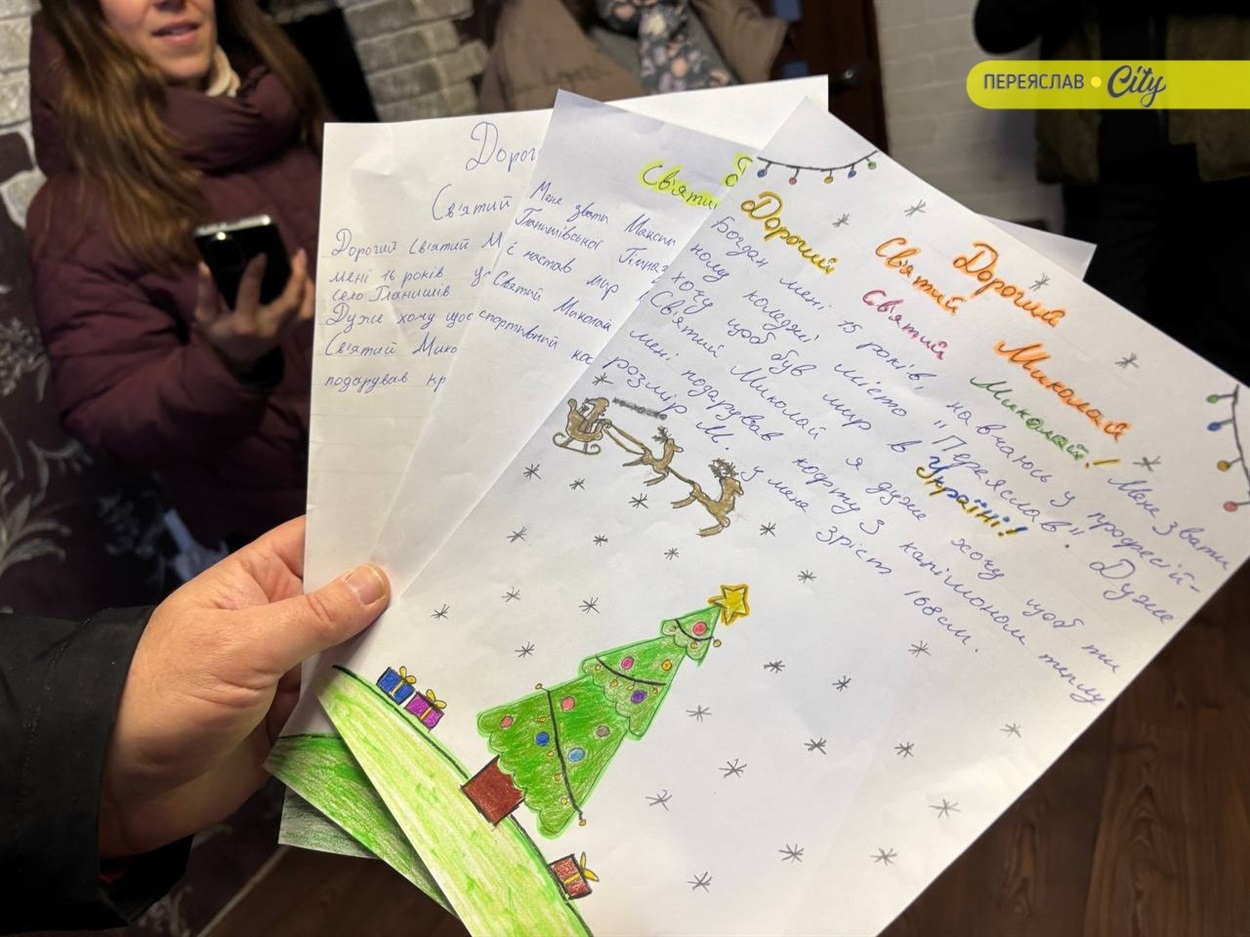 ПЕРЕЯСЛАВ City
Дорог
Св'ятий
Дорогий Св'ятий М
мені 16 років
село Гланишів
Дуже хочу щоб
Св'ятий Мико
подарував кр
Св'яти
Мене звати Максим
Гланишівської Гімназ
настав мир
Святий Миколай
спортивний ко
Дорогий
Святий Миколай
Дорогий Св'ятий Миколай! Мене звати
Богдан мені 15 років, навчаюсь у професій-
ному коледжі місто "Переяслав". Дуже
хочу щоб був мир в Україні!
Святий Миколай я дуже хочу щоб ти
мені подарував кофту з капішоном теплу
розмір М. У мене зріст 168см.